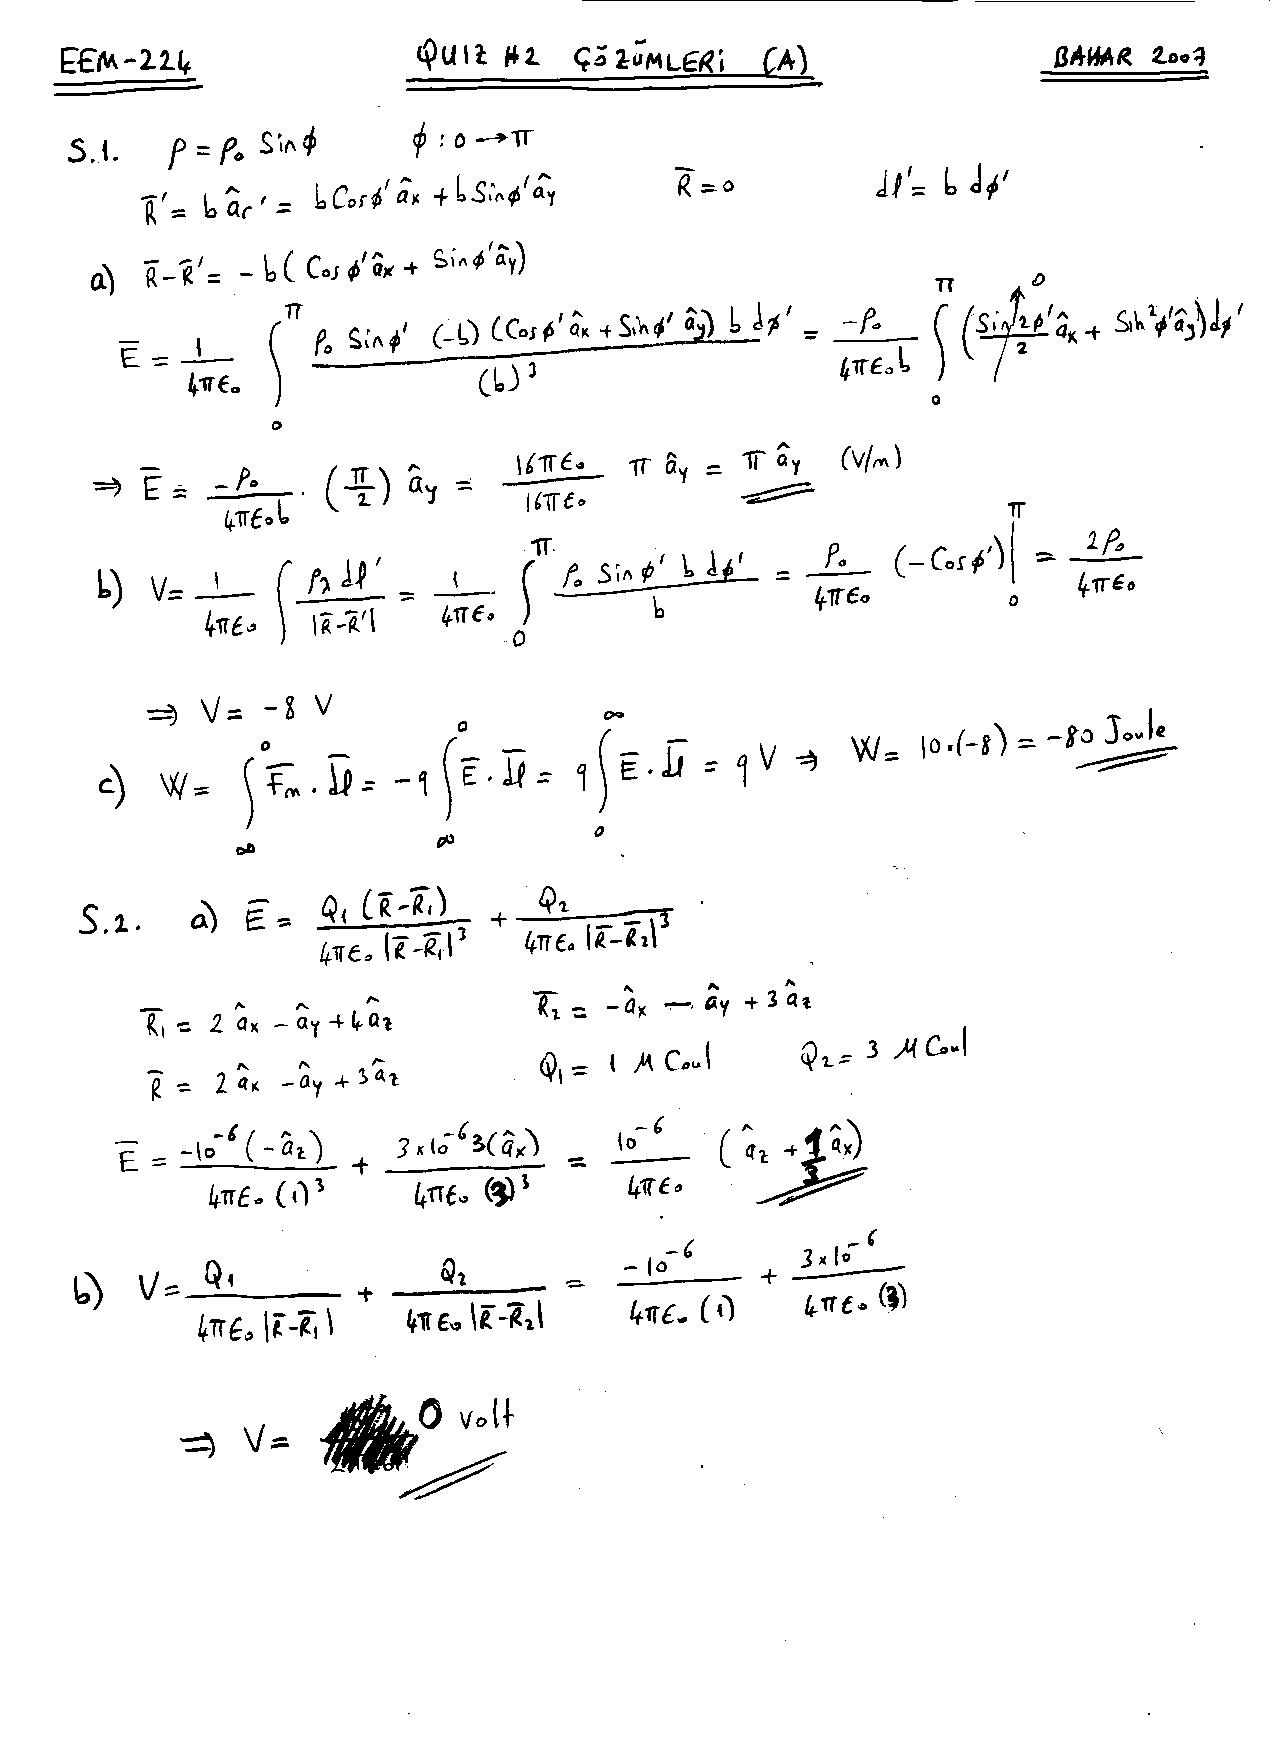 EEM-224 QUIZ #2 ÇÖZÜMLERİ (A) BAHAR 2007
S.1. ρ = ρ₀ Sinϕ ϕ : 0 → π
R̄' = b âr' = b Cosϕ' âx + b Sinϕ' ây R̄ = 0 dl' = b dϕ'
a) R̄-R̄' = -b( Cosϕ' âx + Sinϕ' ây)
Ē = 1/4πε₀ ∫₀^π ρ₀ Sinϕ' (-b) (Cosϕ' âx + Sinϕ' ây) b dϕ' / (b)³ = -ρ₀/4πε₀b ∫₀^π (Sin2ϕ'/2 âx + Sin²ϕ' ây) dϕ' 0
⇒ Ē = -ρ₀/4πε₀b . (π/2) ây = 16πε₀/16πε₀ π ây = π ây (V/m)
b) V = 1/4πε₀ ∫ ρℓ dl'/|R̄-R̄'| = 1/4πε₀ ∫₀^π ρ₀ Sinϕ' b dϕ'/b = ρ₀/4πε₀ (-Cosϕ')|₀^π = 2ρ₀/4πε₀
⇒ V = -8 V
c) W = ∫∞^0 F̄m . d̄l = -q ∫∞^0 Ē . d̄l = q ∫₀^∞ Ē . d̄l = qV ⇒ W = 10.(-8) = -80 Joule
S.2. a) Ē = Q₁ (R̄-R̄₁)/4πε₀ |R̄-R̄₁|³ + Q₂/4πε₀ |R̄-R̄₂|³
R̄₁ = 2 âx - ây + 4 âz R̄₂ = -âx - ây + 3 âz
R̄ = 2 âx - ây + 3 âz Q₁ = 1 μ Coul Q₂ = 3 μ Coul
Ē = -10⁻⁶ (-âz)/4πε₀ (1)³ + 3×10⁻⁶ 3(âx)/4πε₀ (3)³ = 10⁻⁶/4πε₀ (âz + 1/3 âx)
b) V = Q₁/4πε₀ |R̄-R̄₁| + Q₂/4πε₀ |R̄-R̄₂| = -10⁻⁶/4πε₀ (1) + 3×10⁻⁶/4πε₀ (3)
⇒ V = 0 volt